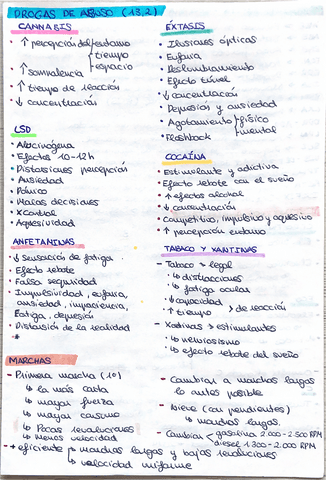 DROGAS DE ABUSO (13,2)
CANNABIS
• ↑ percepción del entorno
tiempo
espacio
• ↑ somnolencia
• ↑ tiempo de reacción
• ↓ concentración
LSD
• Alucinógena
• Efectos 10-12h
• Distorsiones percepción
• Ansiedad
• Pánico
• Malas decisiones
• X Control
• Agresividad
ANFETAMINAS
• ↓ sensación de fatiga
• Efecto rebote
• Falsa seguridad
• Impulsividad, euforia,
ansiedad, impaciencia,
fatiga, depresión
• Distorsión de la realidad
ÉXTASIS
• Ilusiones ópticas
• Euforia
• Deslumbramiento
• Efecto túnel
• ↓ concentración
• Depresión y ansiedad
• Agotamiento físico
mental
• Flashback
COCAÍNA
• Estimulante y adictiva
• Efecto rebote con el sueño
• ↑ efectos alcohol
• ↓ concentración
• Competitivo, impulsivo y agresivo
• ↑ percepción entorno
TABACO Y XANTINAS
- Tabaco → legal
↳ distracciones
↳ fatiga ocular
↳ capacidad
↑ tiempo > de reacción
- Xantinas → estimulantes
↳ nerviosismo
↳ efecto rebote del sueño
MARCHAS
- Primera marcha (1º)
↳ la más corta
↳ mayor fuerza
↳ mayor consumo
↳ Pocas revoluciones
↳ Menos velocidad
- + eficiente marchas largas y bajas revoluciones
velocidad uniforme
- Cambiar a marchas largas
lo antes posible
- Nieve (con pendientes)
↳ marchas largas
- Cambiar gasolina 2.000-2.500 RPM
diesel 1.300-2.000 RPM